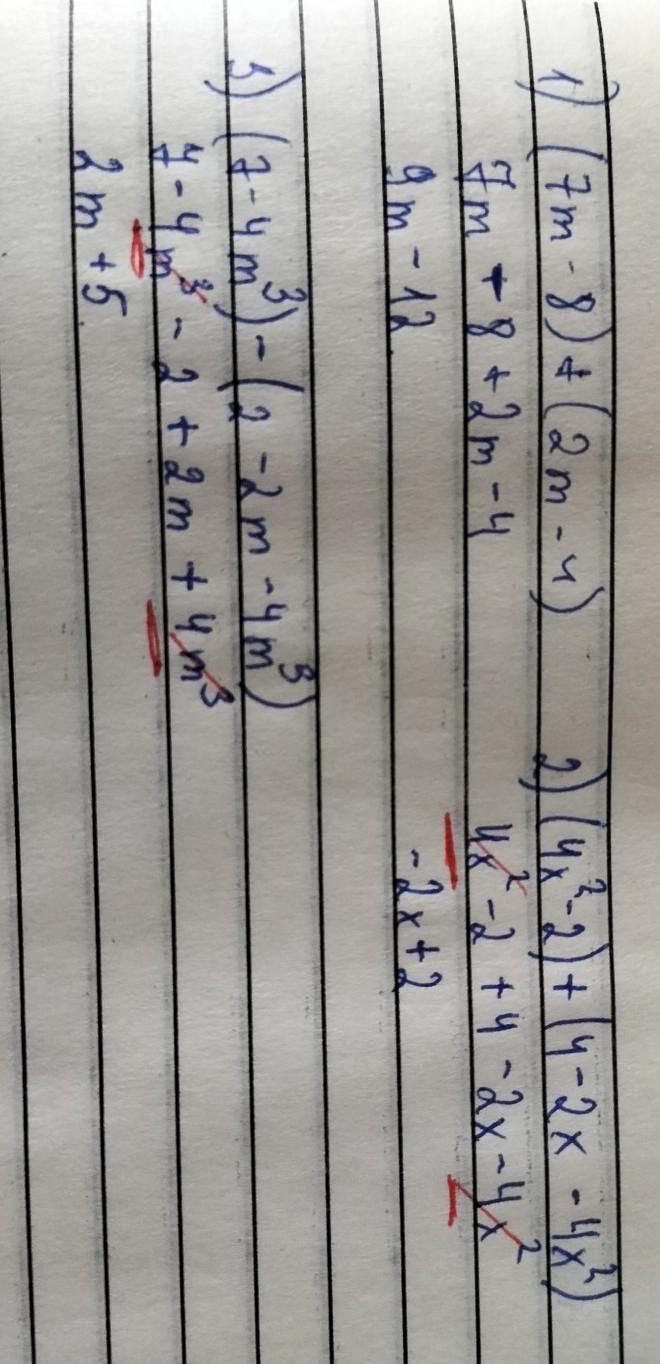 1) (7m - 8) + (2m - 4)
7m - 8 + 2m - 4
9m - 12
2) (4x² - 2) + (4 - 2x - 4x²)
4x² - 2 + 4 - 2x - 4x²
-2x + 2
3) (7 - 4m³) - (2 - 2m - 4m³)
7 - 4m³ - 2 + 2m + 4m³
2m + 5